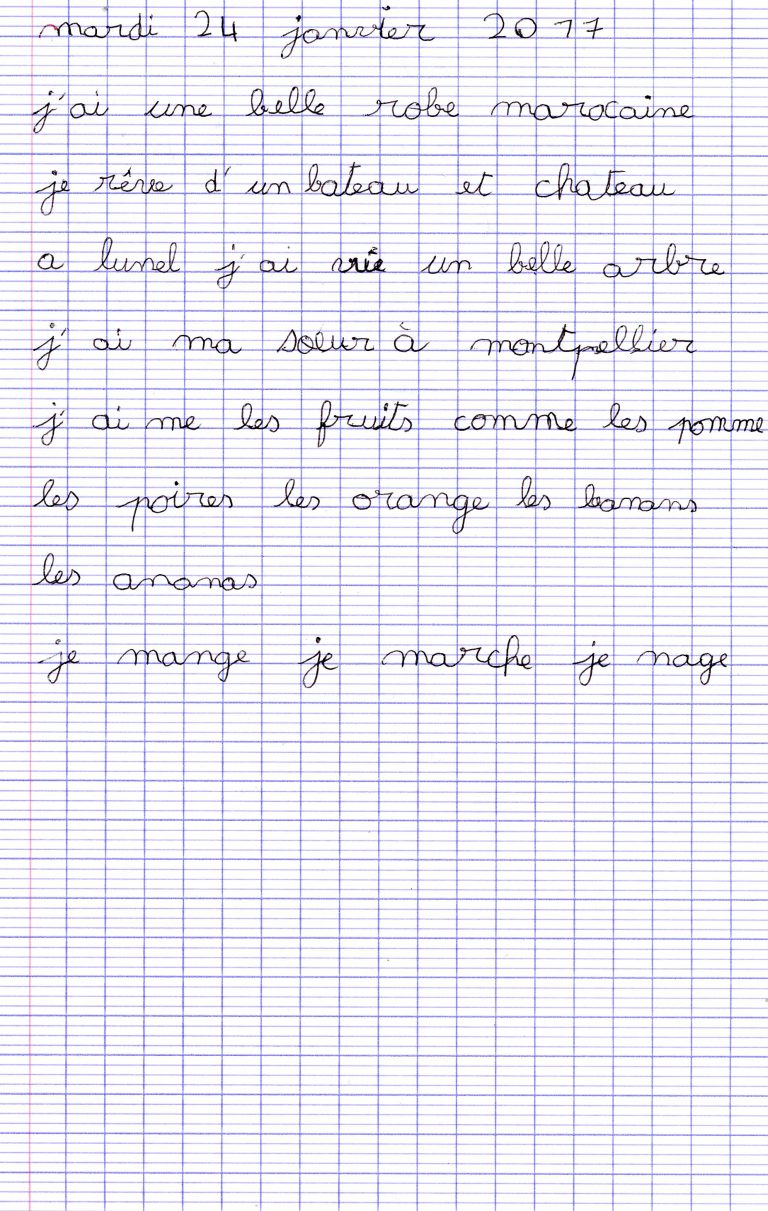 mardi 24 janvier 2017
j'ai une belle robe marocaine
je rêve d'un bateau et chateau
a lunel j'ai un belle arbre
j'ai ma soeur à montpellier
j'ai me les fruits comme les pomme
les poires les orange les banans
les ananas
je mange je marche je nage